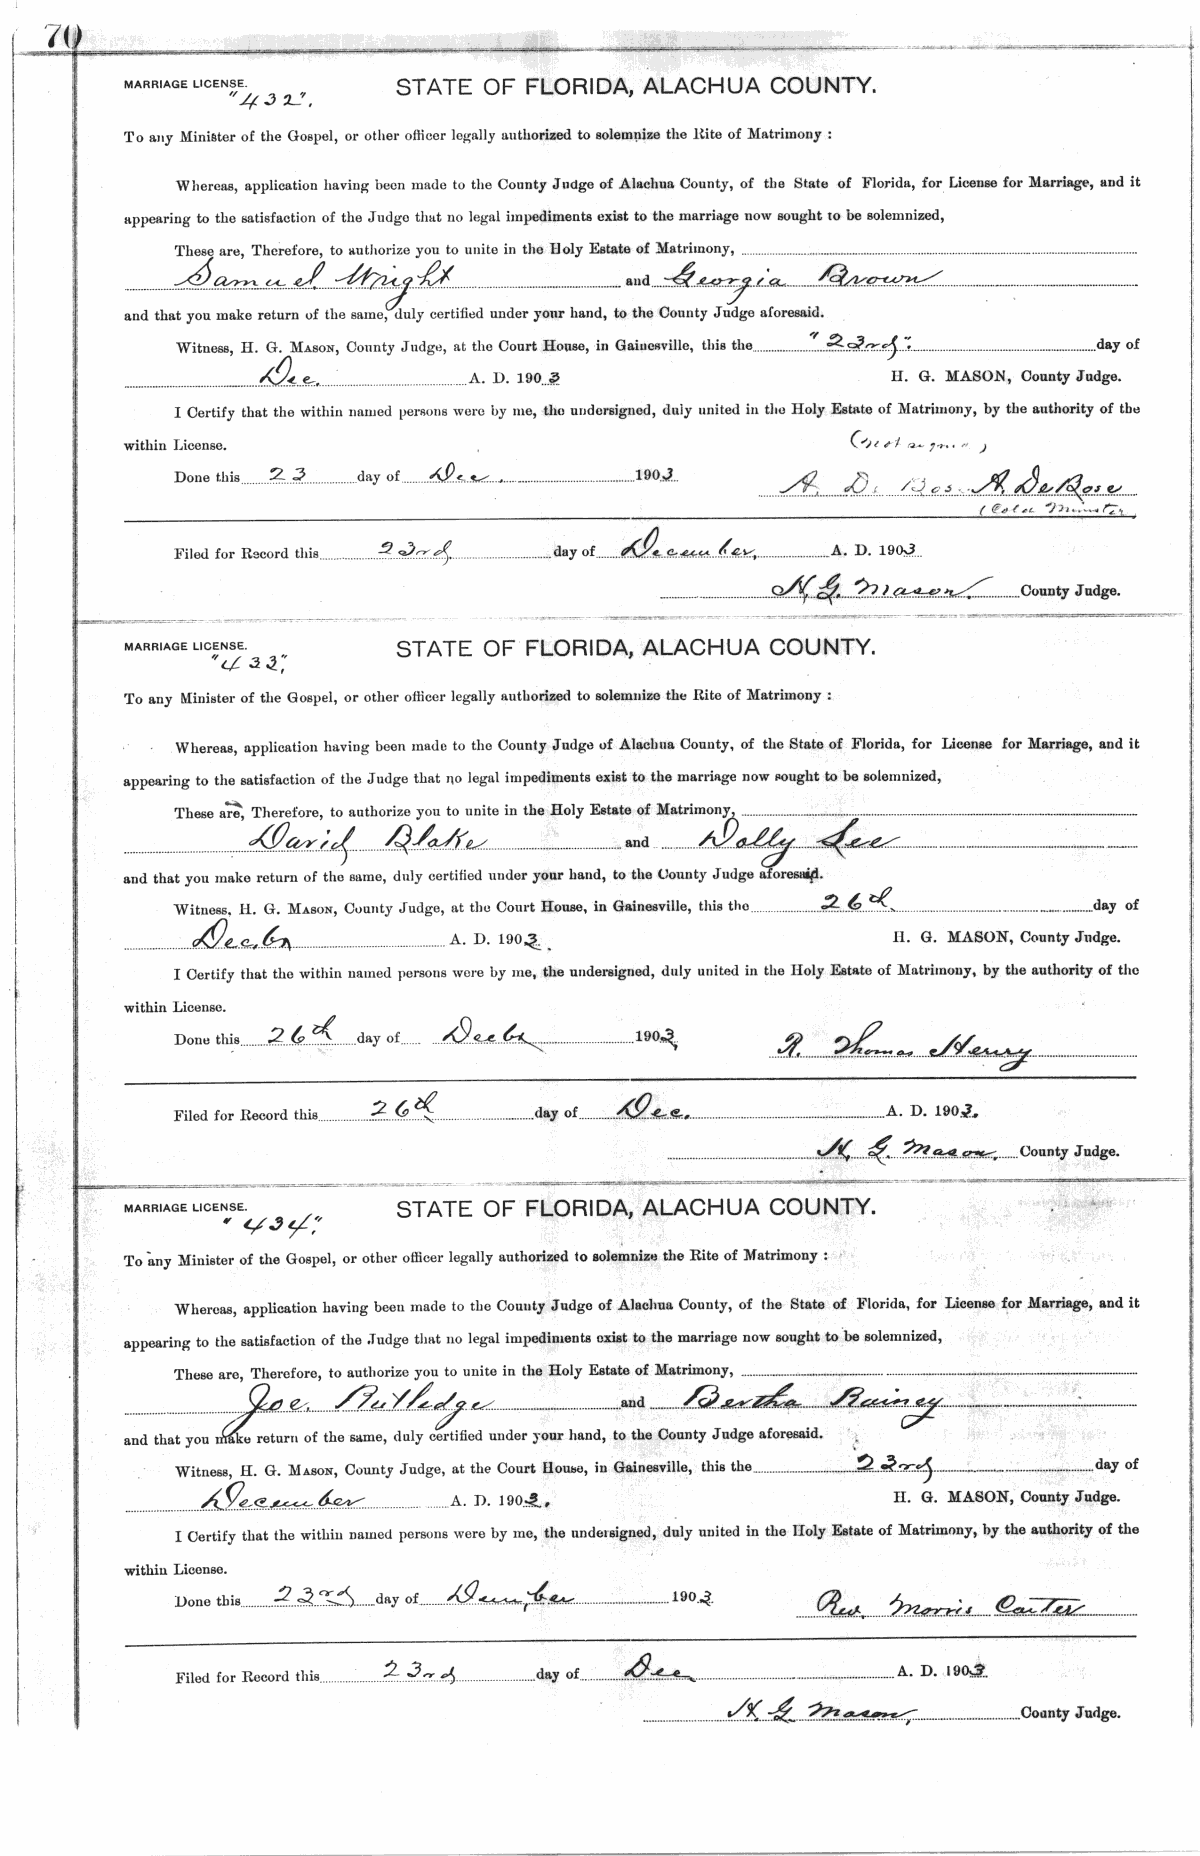 70
MARRIAGE LICENSE. STATE OF FLORIDA, ALACHUA COUNTY.
"432".
To any Minister of the Gospel, or other officer legally authorized to solemnize the Rite of Matrimony :
Whereas, application having been made to the County Judge of Alachua County, of the State of Florida, for License for Marriage, and it
appearing to the satisfaction of the Judge that no legal impediments exist to the marriage now sought to be solemnized,
These are, Therefore, to authorize you to unite in the Holy Estate of Matrimony,
Samuel Wright and Georgia Brown
and that you make return of the same, duly certified under your hand, to the County Judge aforesaid.
Witness, H. G. MASON, County Judge, at the Court House, in Gainesville, this the "23rd". day of
Dec. A. D. 1903 H. G. MASON, County Judge.
I Certify that the within named persons were by me, the undersigned, duly united in the Holy Estate of Matrimony, by the authority of the
within License. (not
Done this 23 day of Dec. 1903 A. D. A. DeBose
(Cold Minster
Filed for Record this 23rd day of December, A. D. 1903
H. G. Mason. County Judge.
MARRIAGE LICENSE. STATE OF FLORIDA, ALACHUA COUNTY.
"433",
To any Minister of the Gospel, or other officer legally authorized to solemnize the Rite of Matrimony :
Whereas, application having been made to the County Judge of Alachua County, of the State of Florida, for License for Marriage, and it
appearing to the satisfaction of the Judge that no legal impediments exist to the marriage now sought to be solemnized,
These are, Therefore, to authorize you to unite in the Holy Estate of Matrimony,
David Blake and Dolly Lee
and that you make return of the same, duly certified under your hand, to the County Judge aforesaid.
Witness, H. G. MASON, County Judge, at the Court House, in Gainesville, this the 26th day of
Decbr A. D. 1903. H. G. MASON, County Judge.
I Certify that the within named persons were by me, the undersigned, duly united in the Holy Estate of Matrimony, by the authority of the
within License.
Done this 26th day of Decbr 1903, R. Thomas Henry
Filed for Record this 26th day of Dec. A. D. 1903.
H. G. Mason. County Judge.
MARRIAGE LICENSE. STATE OF FLORIDA, ALACHUA COUNTY.
"434".
To any Minister of the Gospel, or other officer legally authorized to solemnize the Rite of Matrimony :
Whereas, application having been made to the County Judge of Alachua County, of the State of Florida, for License for Marriage, and it
appearing to the satisfaction of the Judge that no legal impediments exist to the marriage now sought to be solemnized,
These are, Therefore, to authorize you to unite in the Holy Estate of Matrimony,
Joe. Rutledge and Bertha Rainey
and that you make return of the same, duly certified under your hand, to the County Judge aforesaid.
Witness, H. G. MASON, County Judge, at the Court House, in Gainesville, this the 23rd day of
December A. D. 1903. H. G. MASON, County Judge.
I Certify that the within named persons were by me, the undersigned, duly united in the Holy Estate of Matrimony, by the authority of the
within License.
Done this 23rd day of 1903 Rev. Morris Carter
Filed for Record this 23rd day of Dec A. D. 1903
H. G. Mason, County Judge.